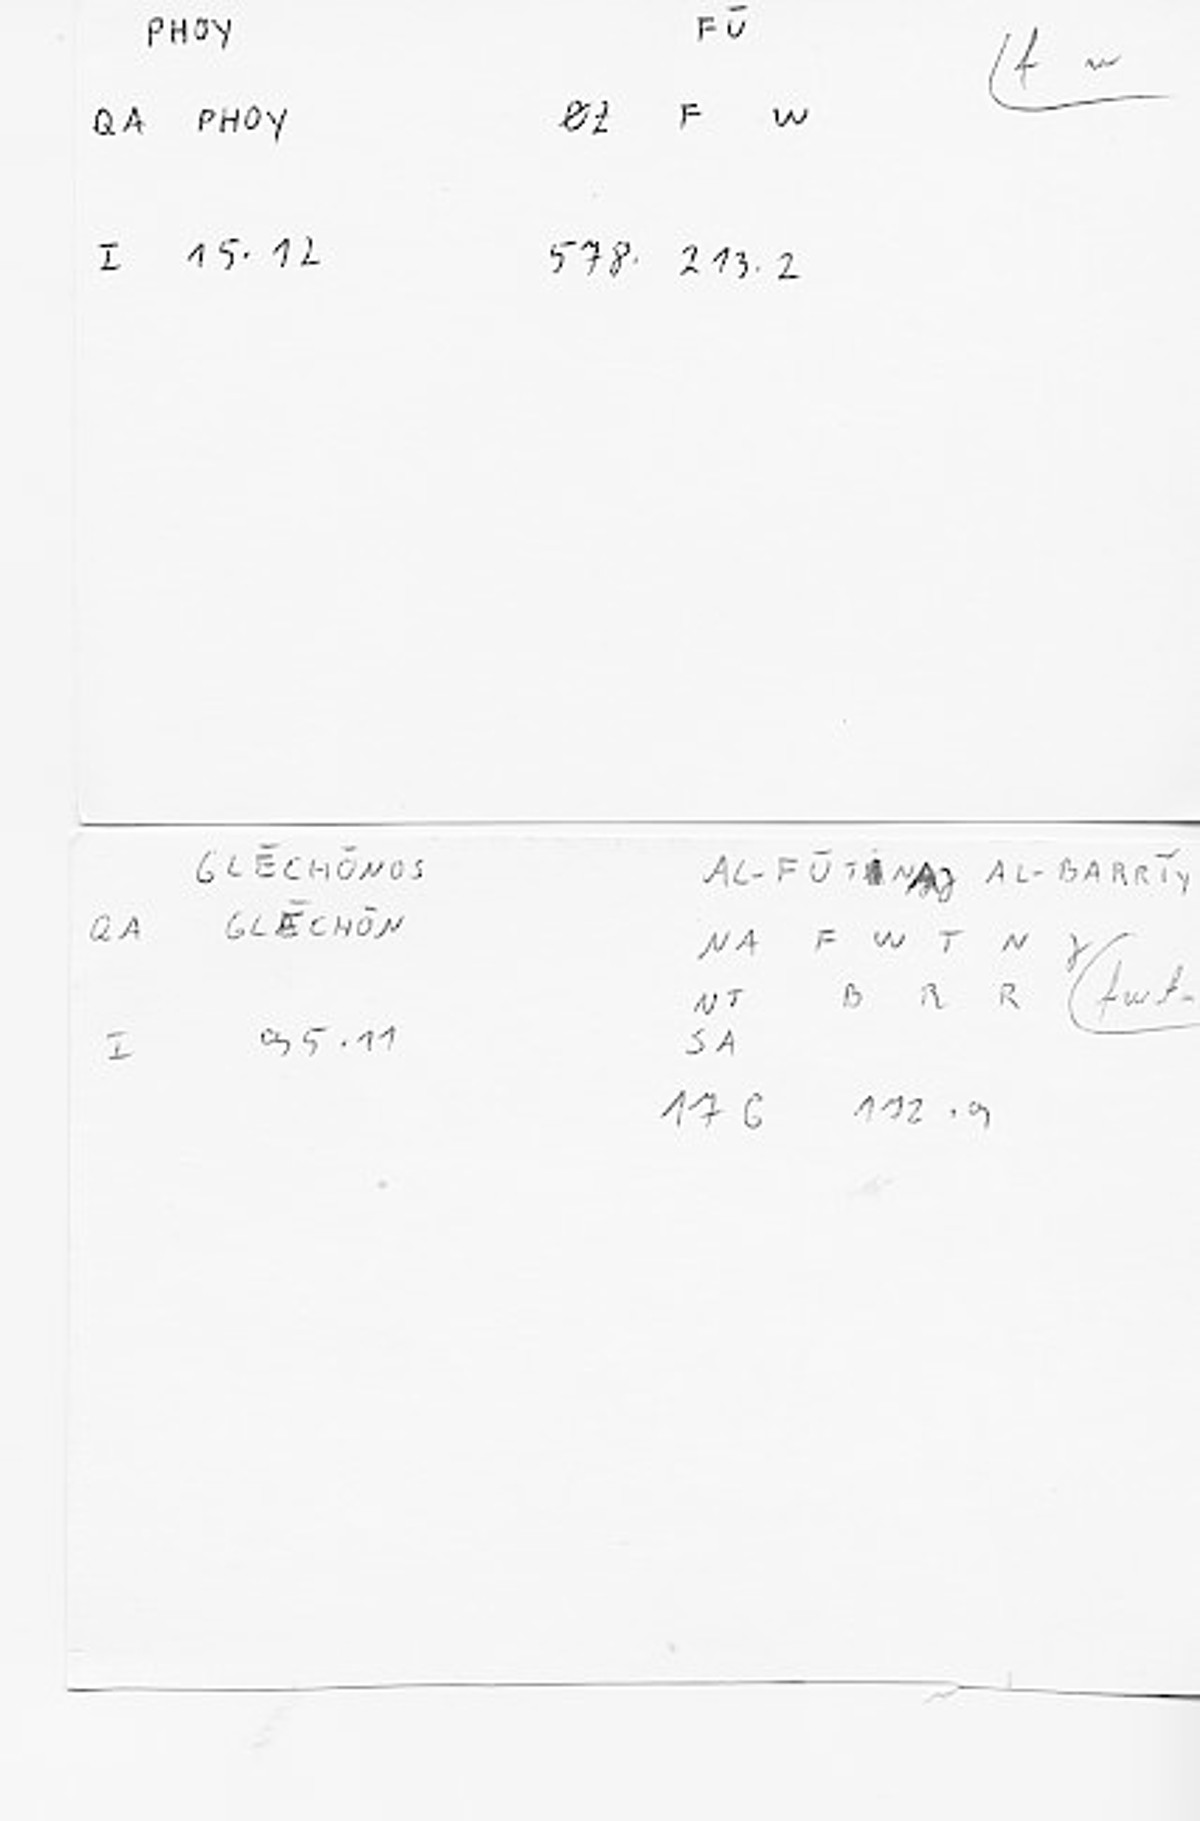 PHOY FŪ
f w
QA PHOY ØZ F W
I 15.12 578. 213.2
GLĒCHŌNOS AL-FŪTINAǧ AL-BARRĪY
QA GLĒCHŌN NA F W T N ǧ
NT B R R fwt-
I 95.11 SA
176 112.9